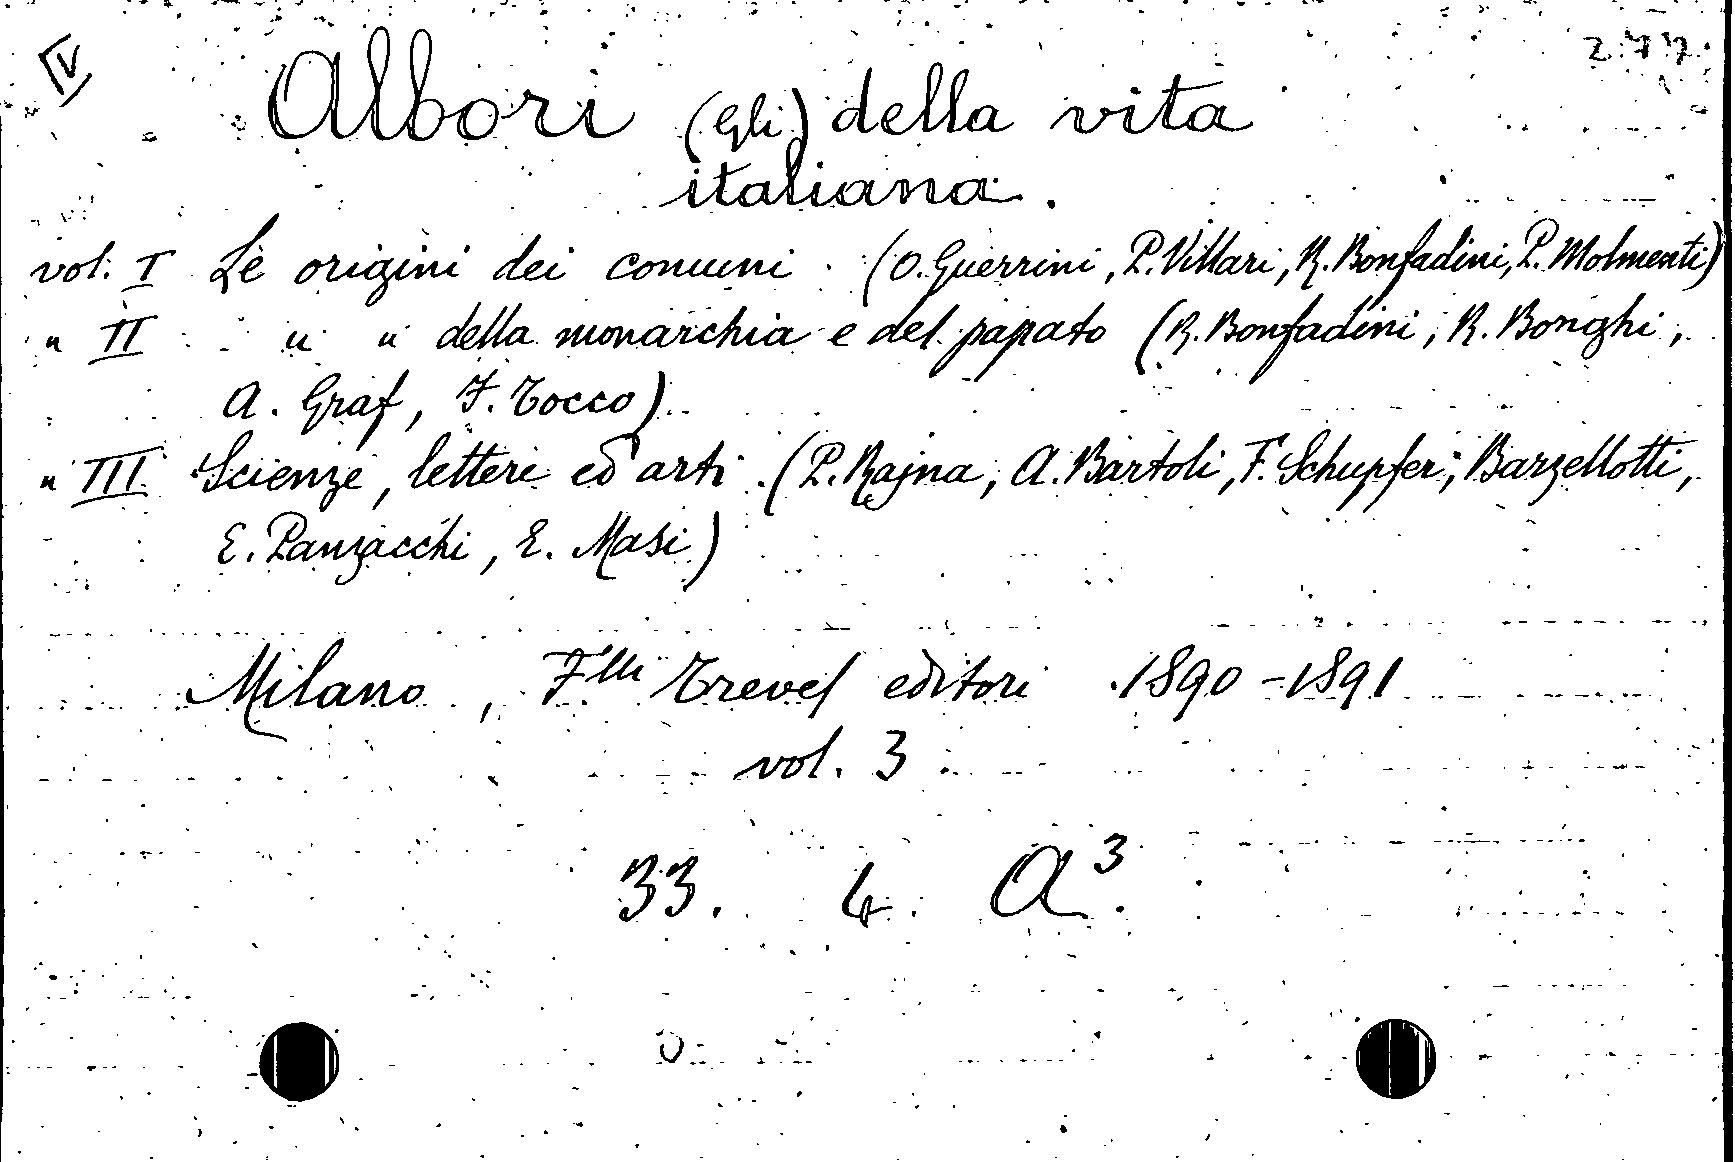 IV
277.
Albori (Gli) della vita
italiana.
vol. I Le origini dei comuni. (O. Guerrini, P. Villari, R. Bonfadini, P. Molmenti)
" II " " della monarchia e del papato (R. Bonfadini, R. Bonghi,
A. Graf, F. Tocco)
" III Scienze, lettere ed arti. (P. Rajna, A. Bartoli, F. Schupfer, Barzellotti,
E. Panzacchi, E. Masi)
Milano, Flli Treves editori 1890-1891
vol. 3
33. 4. A³.